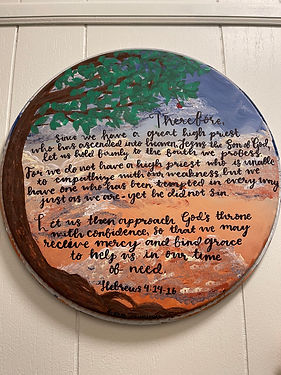 Therefore,
since we have a great high priest
who has ascended into heaven, Jesus the Son of God,
let us hold firmly to the faith we profess.
For we do not have a high priest who is unable
to empathize with our weakness, but we
have one who has been tempted in every way
just as we are - yet he did not sin.
Let us then approach God's throne
with confidence, so that we may
receive mercy and find grace
to help us in our time
of need.
Hebrews 4:14-16